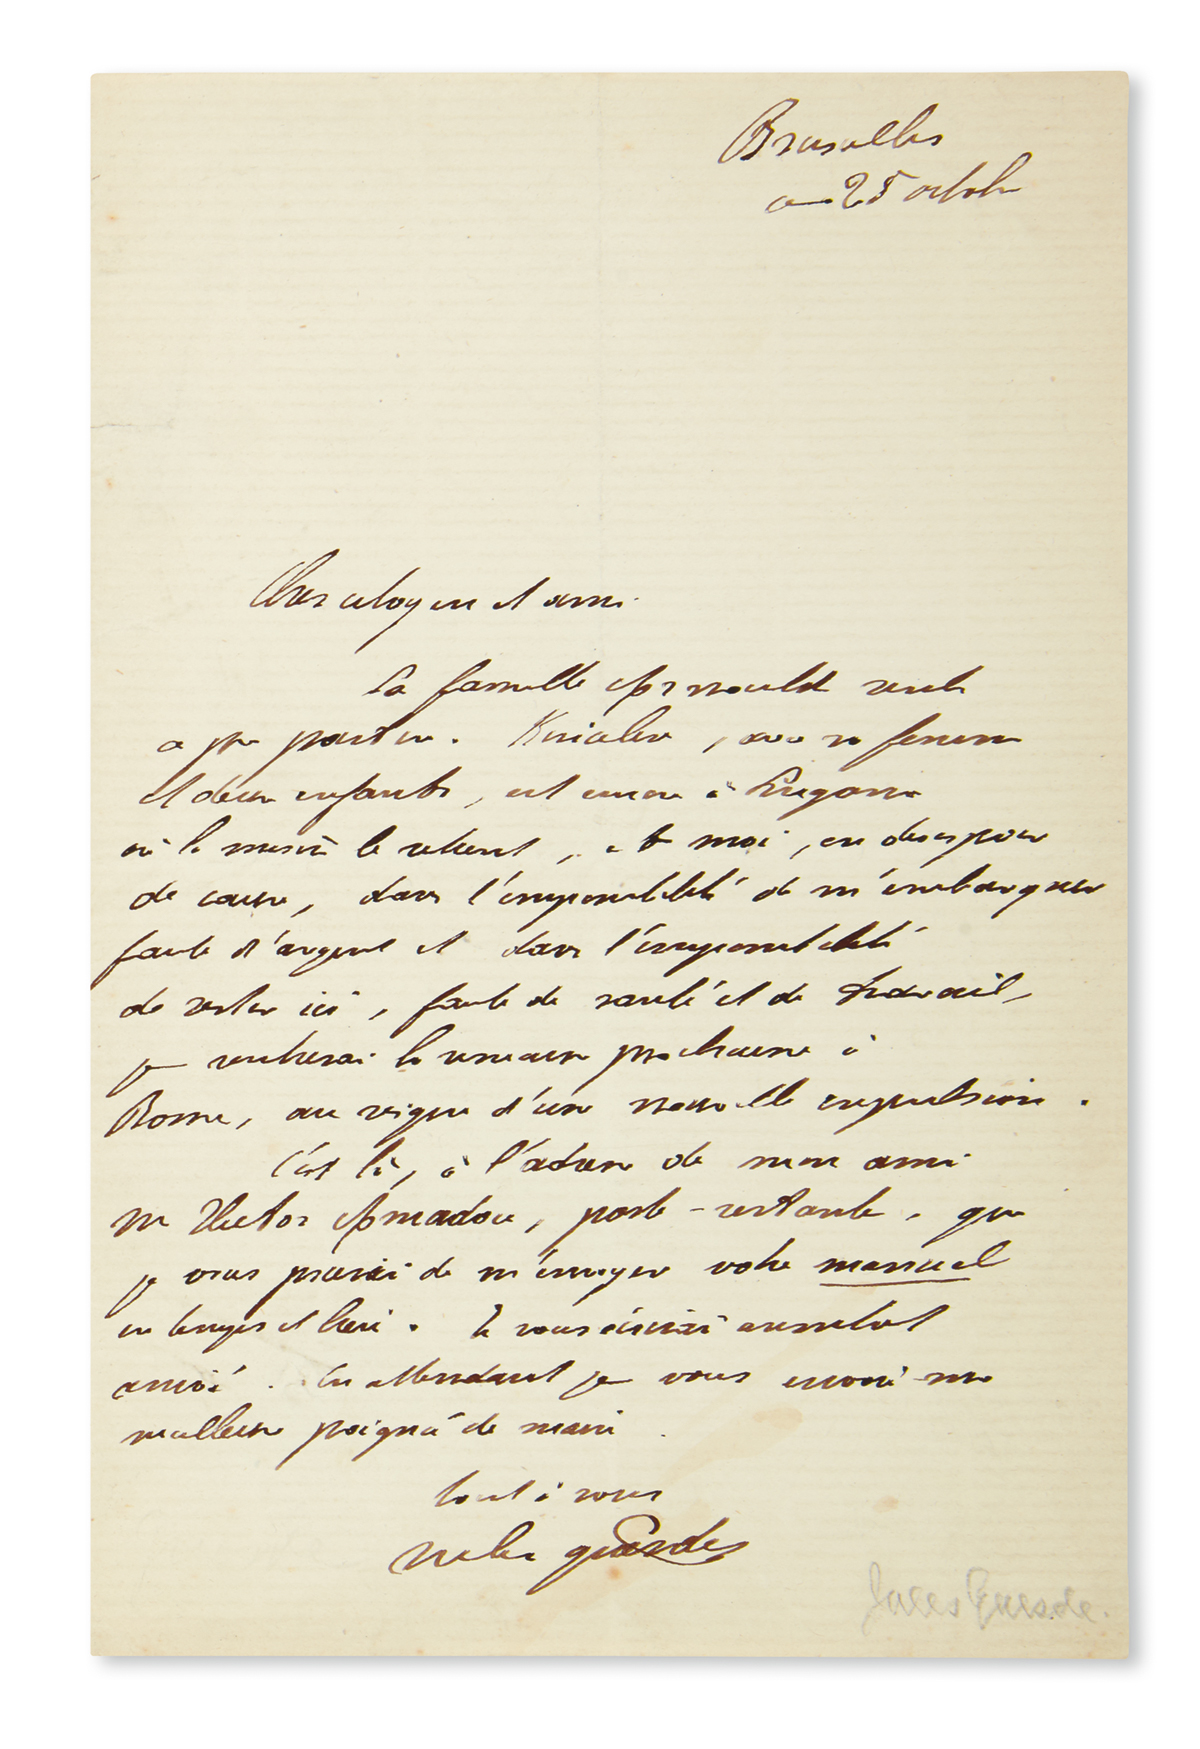 Bruxelles
ce 25 octobre
Cher citoyen et ami
La famille Arnould seule
a pu partir. Kinceler, avec sa femme
et deux enfants, est encore à Lugano
où la misère le retient, et moi, en désespoir
de cause, dans l'impossibilité de m'embarquer
faute d'argent et dans l'impossibilité
de rester ici, faute de santé et de travail,
je rentrerai la semaine prochaine à
Rome, au risque d'une nouvelle expulsion.
C'est là, à l'adresse de mon ami
Mr Victor Amadou, poste-restante, que
je vous prierai de m'envoyer votre manuel
en temps et lieu. Je vous écrirai aussitôt
arrivé. En attendant je vous envoie ma
meilleure poignée de main
tout à vous
Jules Guesde
Jules Guesde.